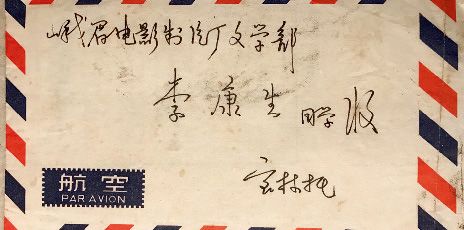 峨眉电影制片厂文学部
李康生 同学 收
托
航空
PAR AVION